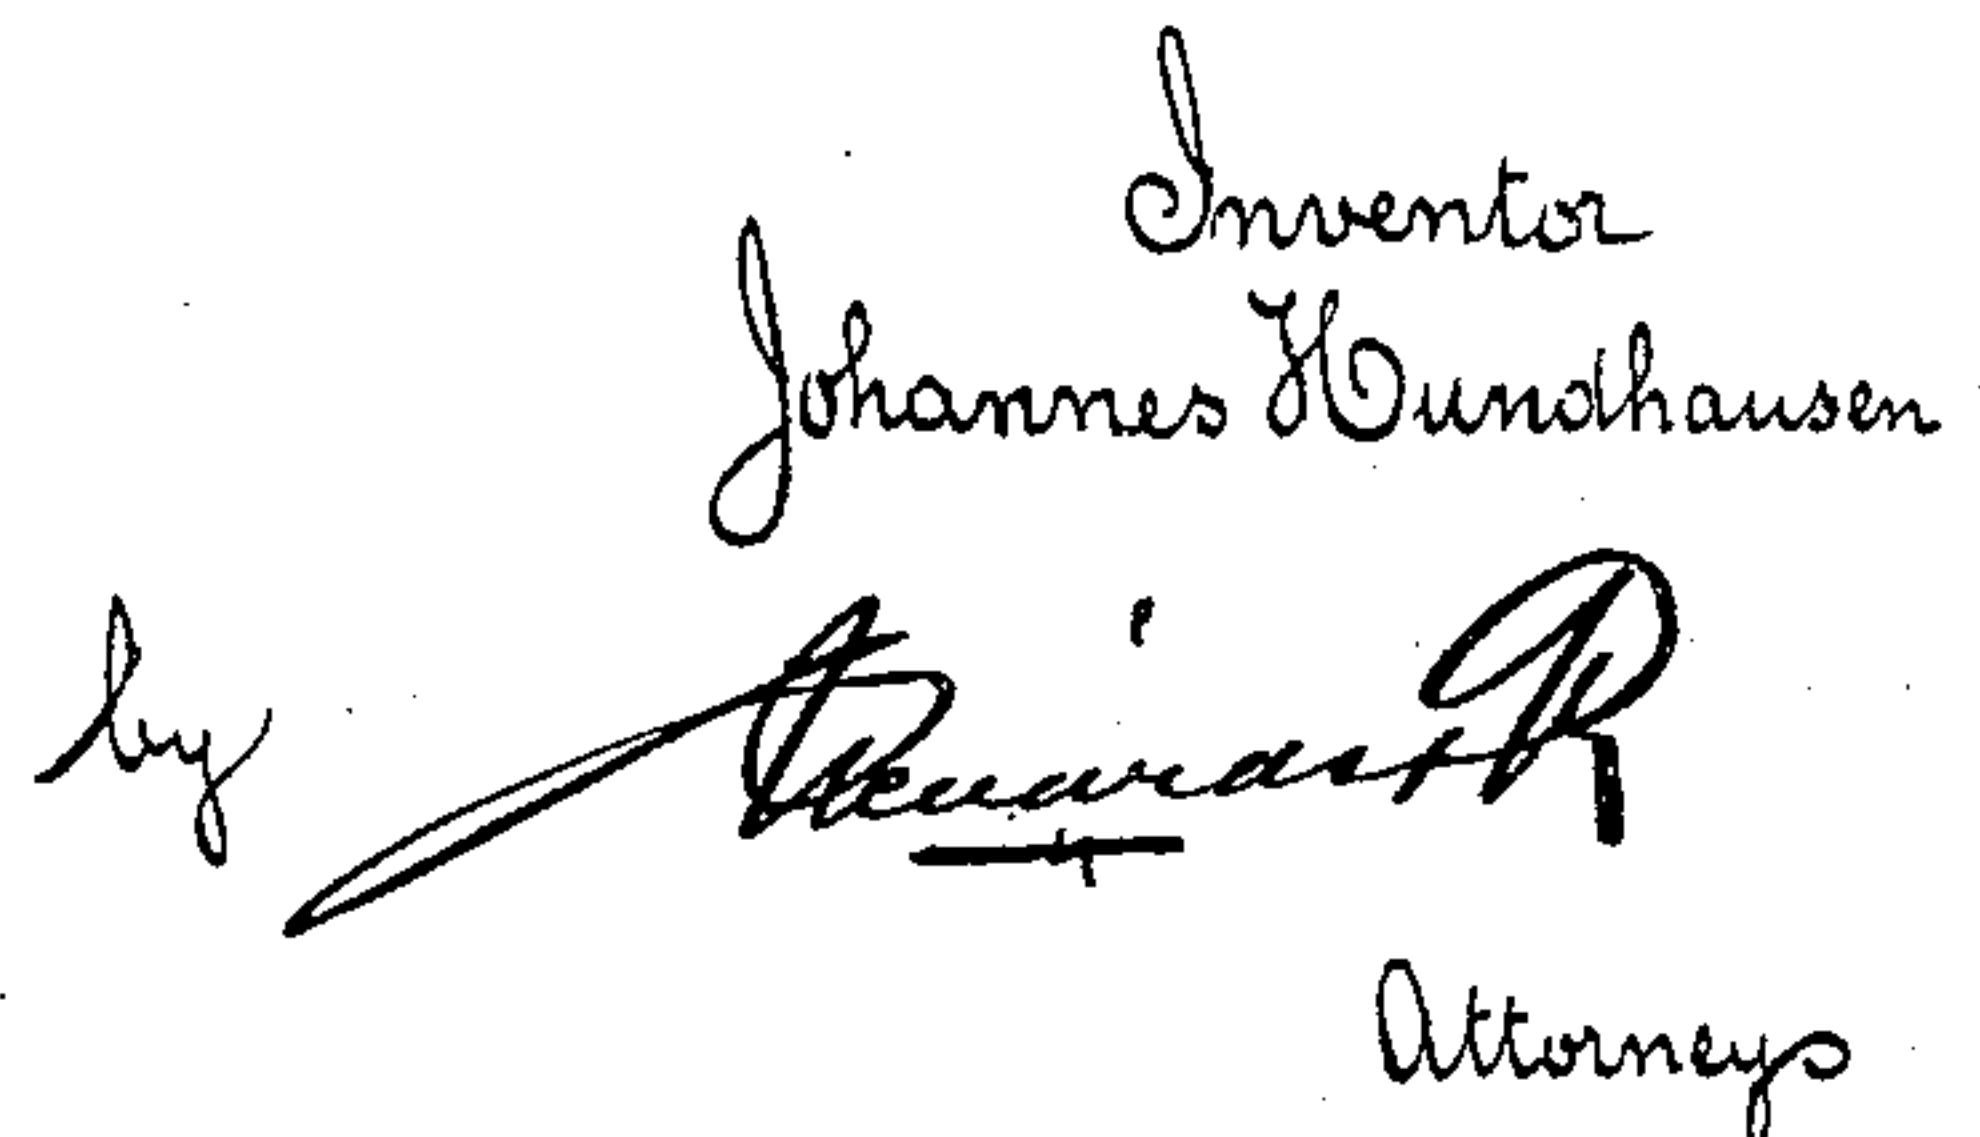 Inventor
Johannes Hundhausen
by
Attorneys